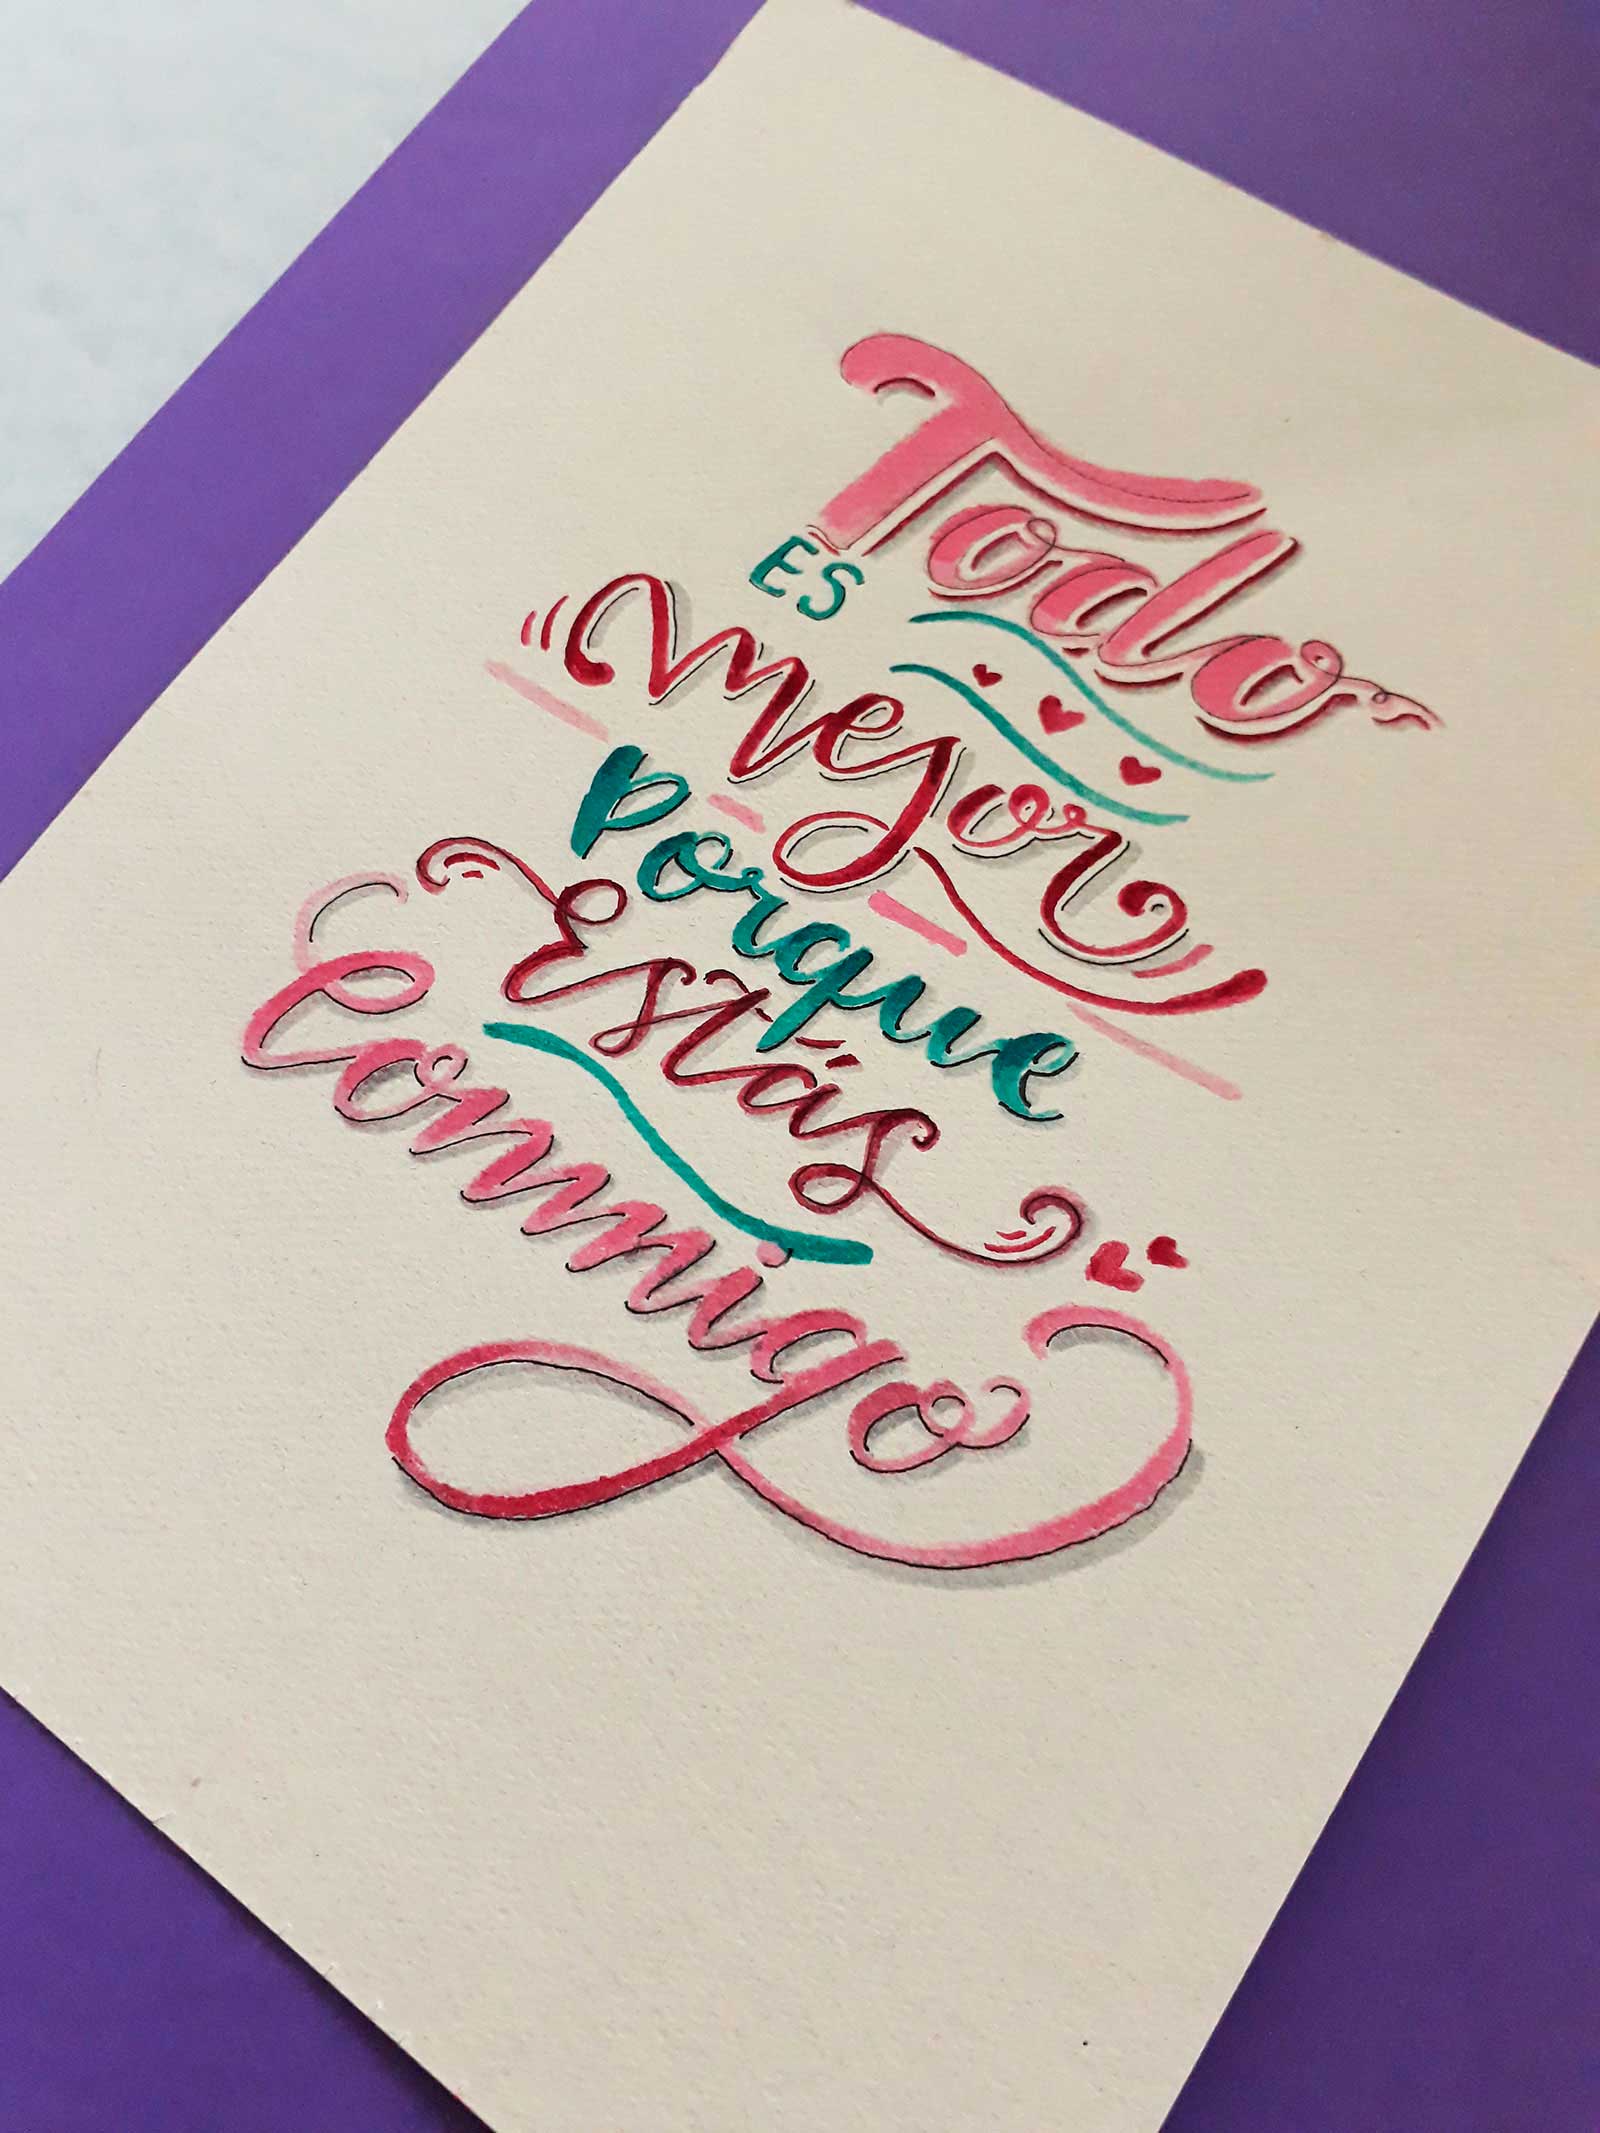 Todo
ES
mejor
porque
Estás
Conmigo